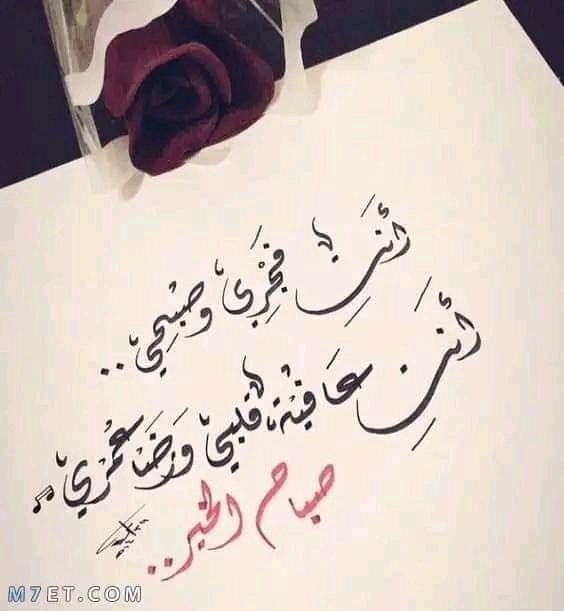 أنتِ فَجْري وصُبْحي..
أنتِ عَافية قلبي ورَضَا عُمْري
صباح الخير..
M7ET.COM